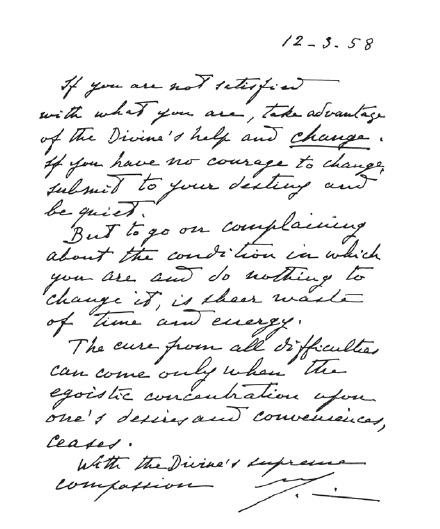 12-3.58
If you are not satisfied
with what you are, take advantage
of the Divine's help and change.
If you have no courage to change,
submit to your destiny and
be quiet.
But to go on complaining
about the condition in which
you are and do nothing to
change it, is sheer waste
of time and energy.
The cure from all difficulties
can come only when the
egoistic concentration upon
one's desires and conveniences,
ceases.
With the Divine's supreme
compassion